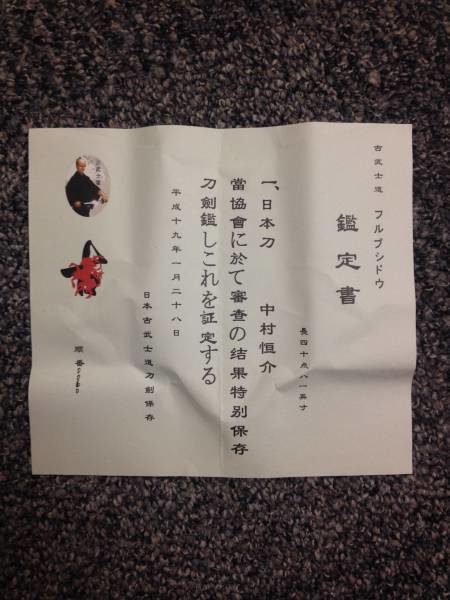 古武士道 フルブシドウ
鑑定書
長四十点八一英寸
一、日本刀 中村恒介
當協會に於て審查の结果特別保存
刀劍鑑しこれを証定する
平成十九年一月二十八日
日本古武士道刀剣保存
順番